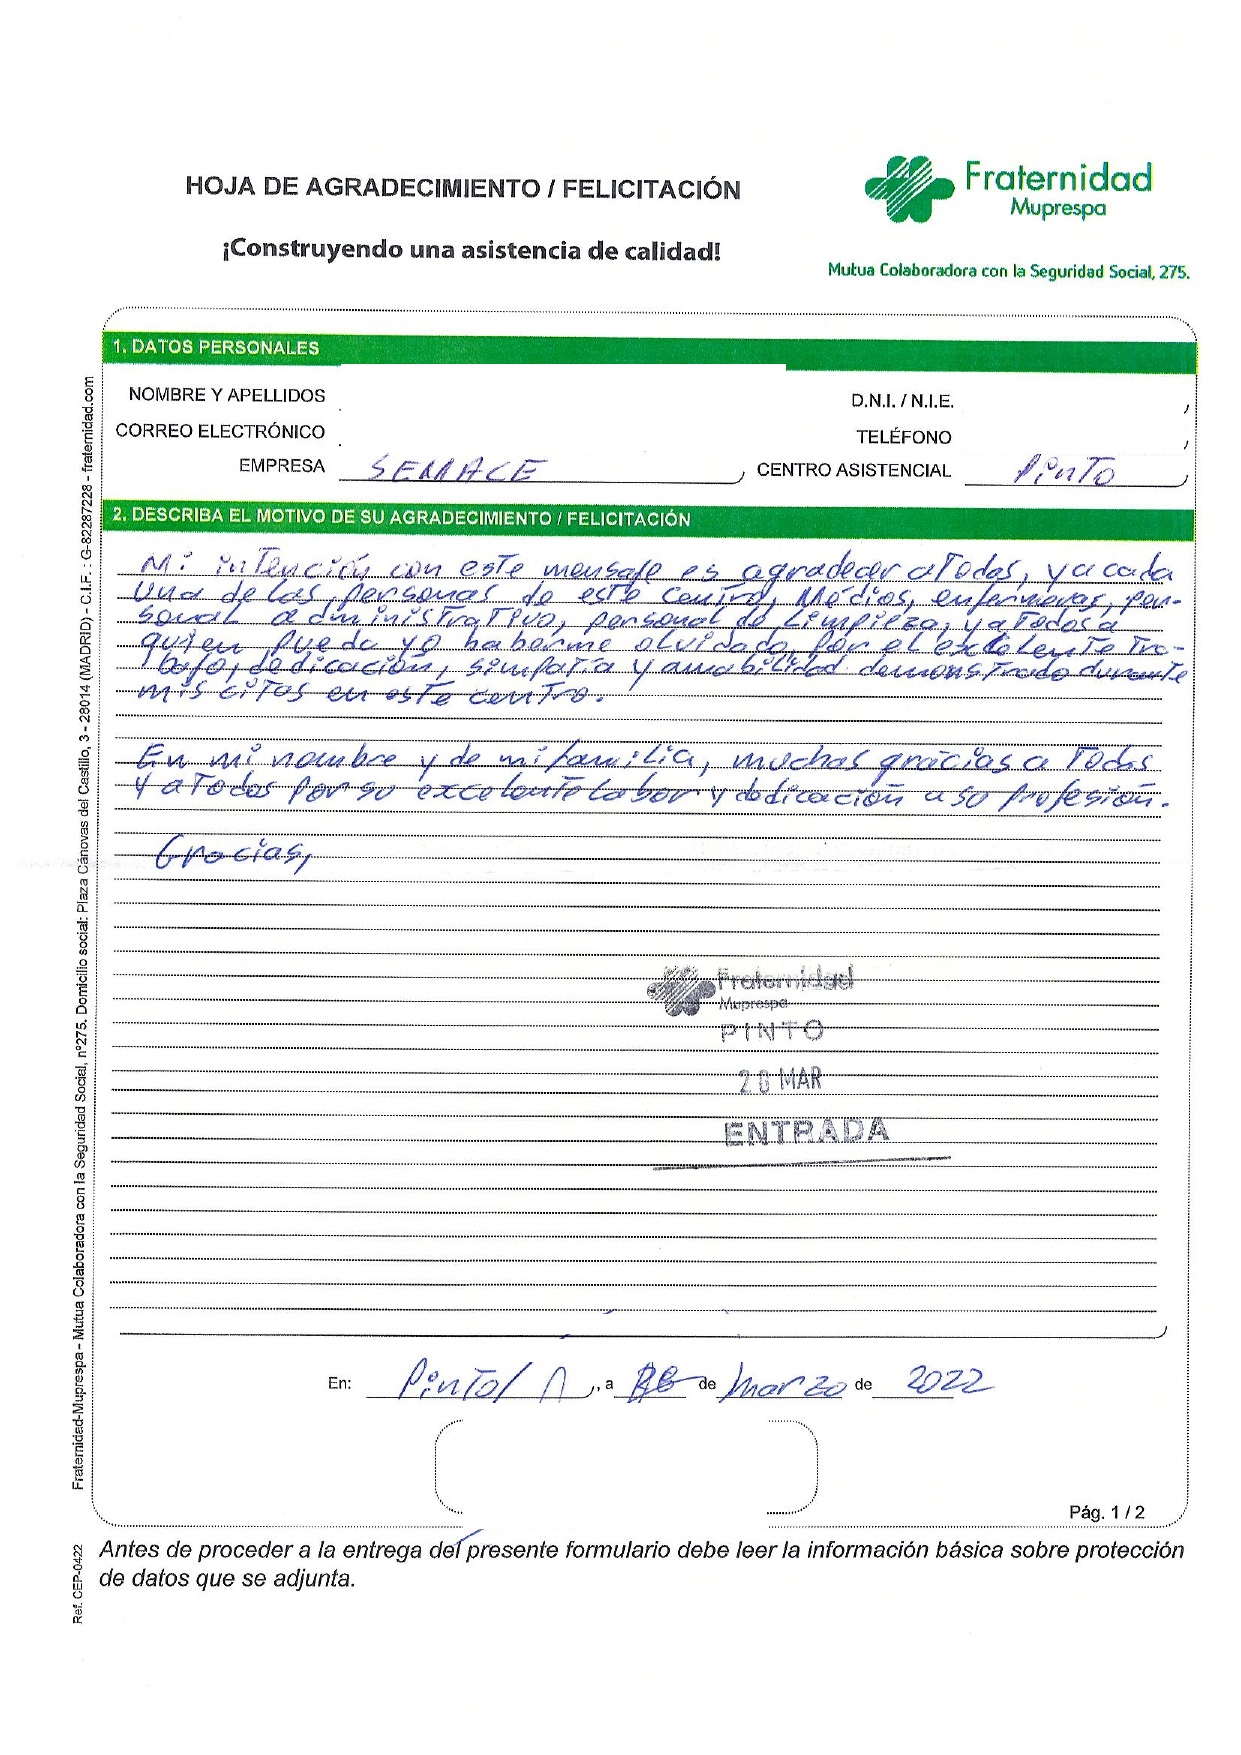 HOJA DE AGRADECIMIENTO / FELICITACIÓN
¡Construyendo una asistencia de calidad!
Fraternidad
Muprespa
Mutua Colaboradora con la Seguridad Social, 275.
1. DATOS PERSONALES
NOMBRE Y APELLIDOS
D.N.I. / N.I.E.
CORREO ELECTRÓNICO
TELÉFONO
EMPRESA SEMACE CENTRO ASISTENCIAL PINTO
2. DESCRIBA EL MOTIVO DE SU AGRADECIMIENTO / FELICITACIÓN
Mi intención con este mensaje es agradecer a Todas, y a cada
una de las personas de este Centro, Médios, enfermeras, per-
sonal administrativo, personal de Limpieza, y a Todos a
quien pueda yo haberme olvidado, por el excelente Tra-
bajo, dedicación, simpatía y amabilidad demonstrado durante
mis citas en este centro.
En mi nombre y de mi familia, muchas gracias a Todas
y a Todos por su excelente Labor y dedicación a su profesión.
Gracias,
Fraternidad
Muprespa
PINTO
MAR
ENTRADA
En: Pinto/ , a de marzo de 2022
Pág. 1 / 2
Antes de proceder a la entrega del presente formulario debe leer la información básica sobre protección
de datos que se adjunta.
Fraternidad-Muprespa - Mutua Colaboradora con la Seguridad Social, nº275. Domicilio social: Plaza Cánovas del Castillo, 3 - 28014 (MADRID) - C.I.F. : G-82287228 - fraternidad.com
Ref. CEP-0422